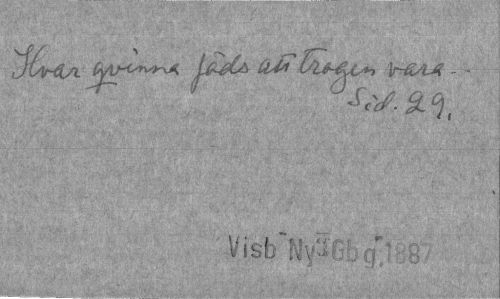 Hvar qvinna föds att trogen vara --
Sid. 29.
Visb Ny Gbg, 1887